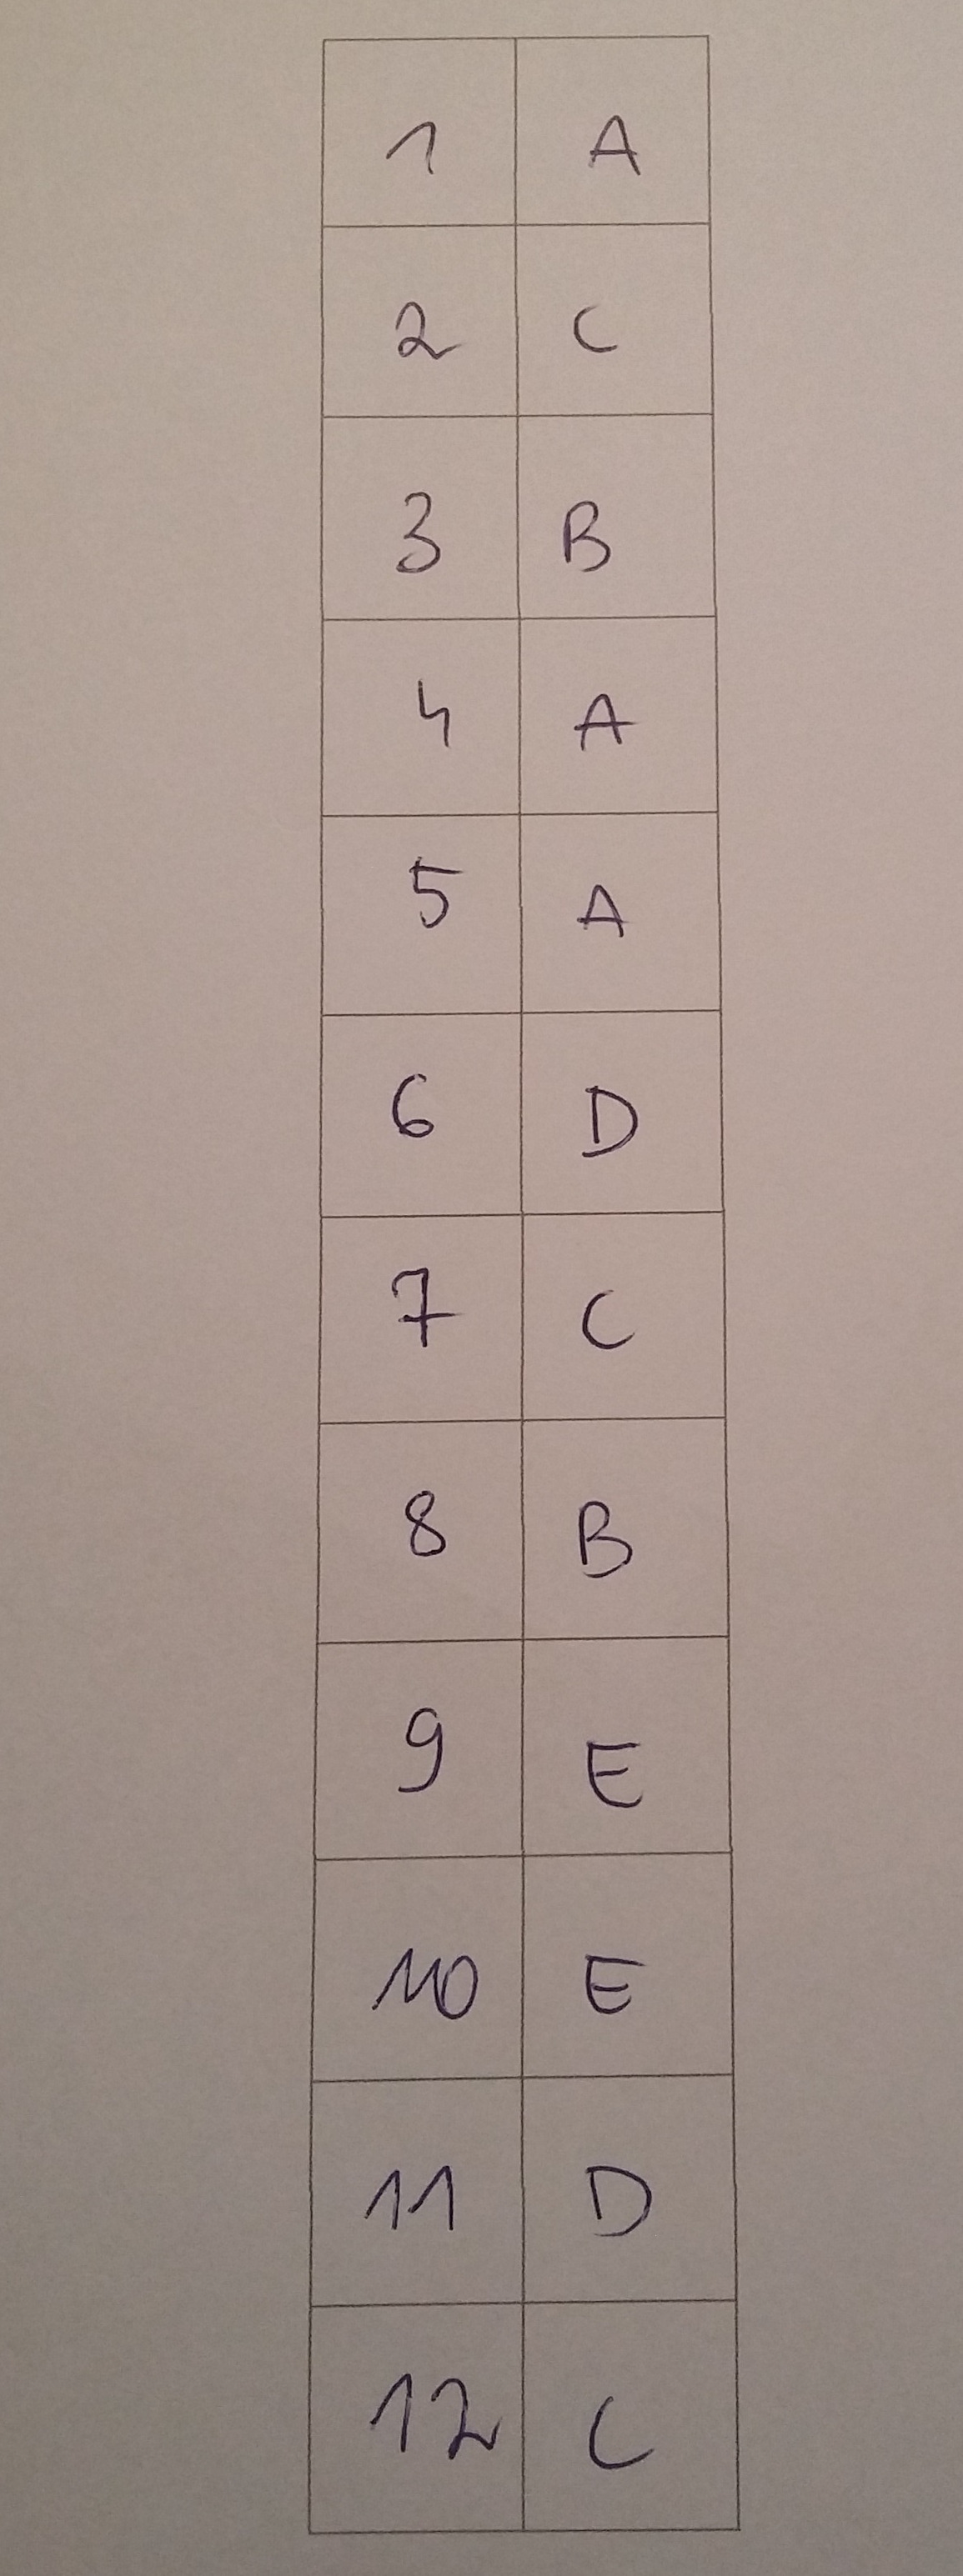 1 A
2 C
3 B
4 A
5 A
6 D
7 C
8 B
9 E
10 E
11 D
12 C